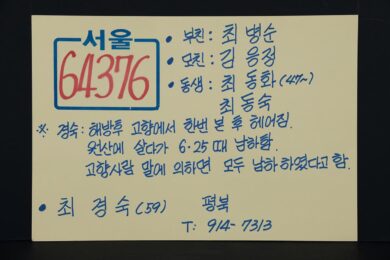 서울
64376
• 부친: 최병순
• 모친: 김응정
• 동생: 최동화(47~)
최동숙
※ 경숙: 해방후 고향에서 한번 본 후 헤어짐.
원산에 살다가 6·25때 남하함.
고향사람 말에 의하면 모두 남하하였다고 함.
• 최경숙(59) 평북
T: 914-7313